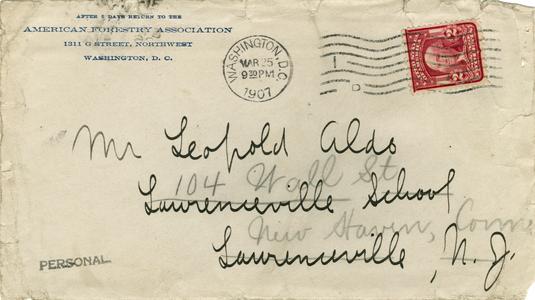 AFTER 5 DAYS RETURN TO THE
AMERICAN FORESTRY ASSOCIATION
1311 G STREET, NORTHWEST
WASHINGTON, D. C.
WASHINGTON, D.C.
MAR 25
9 30 PM
1907
Mr Leopold Aldo
104 Wall St
Lawrenceville School
New Haven, Conn
Lawrenceville, N. J.
PERSONAL